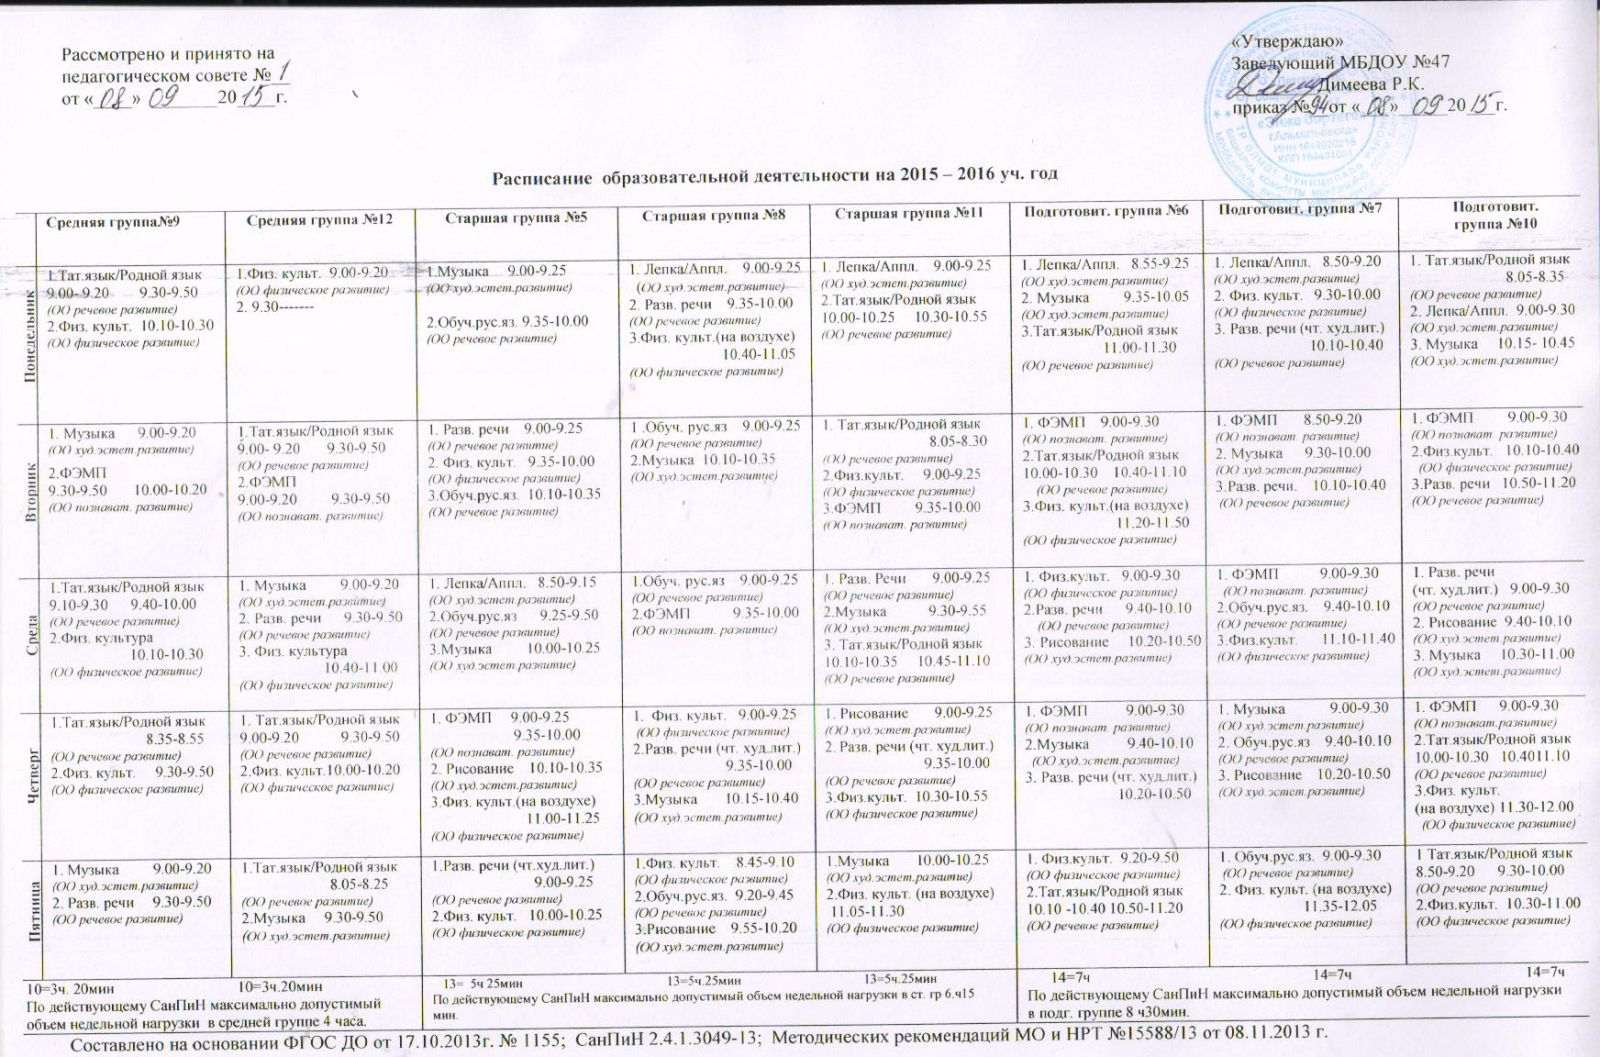 Рассмотрено и принято на
педагогическом совете № 1
от «08» 09 2015 г.
«Утверждаю»
Заведующий МБДОУ №47
Димеева Р.К.
приказ №94 от «08» 09 2015 г.
«Энже бөртеге»
г.Альметьевска
ИНН 1644020216
КПП 164401001
Расписание образовательной деятельности на 2015 – 2016 уч. год
Средняя группа№9
Средняя группа №12
Старшая группа №5
Старшая группа №8
Старшая группа №11
Подготовит. группа №6
Подготовит. группа №7
Подготовит.
группа №10
Понедельник
1.Тат.язык/Родной язык
9.00- 9.20 9.30-9.50
(ОО речевое развитие)
2.Физ. культ. 10.10-10.30
(ОО физическое развитие)
1.Физ. культ. 9.00-9.20
(ОО физическое развитие)
2. 9.30-------
1.Музыка 9.00-9.25
(ОО худ.эстет.развитие)
2.Обуч.рус.яз. 9.35-10.00
(ОО речевое развитие)
1. Лепка/Аппл. 9.00-9.25
(ОО худ.эстет.развитие)
2. Разв. речи 9.35-10.00
(ОО речевое развитие)
3.Физ. культ.(на воздухе)
10.40-11.05
(ОО физическое развитие)
1. Лепка/Аппл. 9.00-9.25
(ОО худ.эстет.развитие)
2.Тат.язык/Родной язык
10.00-10.25 10.30-10.55
(ОО речевое развитие)
1. Лепка/Аппл. 8.55-9.25
(ОО худ.эстет.развитие)
2. Музыка 9.35-10.05
(ОО худ.эстет.развитие)
3.Тат.язык/Родной язык
11.00-11.30
(ОО речевое развитие)
1. Лепка/Аппл. 8.50-9.20
(ОО худ.эстет.развитие)
2. Физ. культ. 9.30-10.00
(ОО физическое развитие)
3. Разв. речи (чт. худ.лит.)
10.10-10.40
(ОО речевое развитие)
1. Тат.язык/Родной язык
8.05-8.35
(ОО речевое развитие)
2. Лепка/Аппл. 9.00-9.30
(ОО худ.эстет.развитие)
3. Музыка 10.15- 10.45
(ОО худ.эстет.развитие)
Вторник
1. Музыка 9.00-9.20
(ОО худ.эстет.развитие)
2.ФЭМП
9.30-9.50 10.00-10.20
(ОО познават. развитие)
1.Тат.язык/Родной язык
9.00- 9.20 9.30-9.50
(ОО речевое развитие)
2.ФЭМП
9.00-9.20 9.30-9.50
(ОО познават. развитие)
1. Разв. речи 9.00-9.25
(ОО речевое развитие)
2. Физ. культ. 9.35-10.00
(ОО физическое развитие)
3.Обуч.рус.яз. 10.10-10.35
(ОО речевое развитие)
1 .Обуч. рус.яз 9.00-9.25
(ОО речевое развитие)
2.Музыка 10.10-10.35
(ОО худ.эстет.развитие)
1. Тат.язык/Родной язык
8.05-8.30
(ОО речевое развитие)
2.Физ.культ. 9.00-9.25
(ОО физическое развитие)
3.ФЭМП 9.35-10.00
(ОО познават. развитие)
1. ФЭМП 9.00-9.30
(ОО познават. развитие)
2.Тат.язык/Родной язык
10.00-10.30 10.40-11.10
(ОО речевое развитие)
3.Физ. культ.(на воздухе)
11.20-11.50
(ОО физическое развитие)
1. ФЭМП 8.50-9.20
(ОО познават. развитие)
2. Музыка 9.30-10.00
(ОО худ.эстет.развитие)
3.Разв. речи. 10.10-10.40
(ОО речевое развитие)
1. ФЭМП 9.00-9.30
(ОО познават. развитие)
2.Физ.культ. 10.10-10.40
(ОО физическое развитие)
3.Разв. речи 10.50-11.20
(ОО речевое развитие)
Среда
1.Тат.язык/Родной язык
9.10-9.30 9.40-10.00
(ОО речевое развитие)
2.Физ. культура
10.10-10.30
(ОО физическое развитие)
1. Музыка 9.00-9.20
(ОО худ.эстет.развитие)
2. Разв. речи 9.30-9.50
(ОО речевое развитие)
3. Физ. культура
10.40-11.00
(ОО физическое развитие)
1. Лепка/Аппл. 8.50-9.15
(ОО худ.эстет.развитие)
2.Обуч.рус.яз 9.25-9.50
(ОО речевое развитие)
3.Музыка 10.00-10.25
(ОО худ.эстет.развитие)
1.Обуч. рус.яз 9.00-9.25
(ОО речевое развитие)
2.ФЭМП 9.35-10.00
(ОО познават. развитие)
1. Разв. Речи 9.00-9.25
(ОО речевое развитие)
2.Музыка 9.30-9.55
(ОО худ.эстет.развитие)
3. Тат.язык/Родной язык
10.10-10.35 10.45-11.10
(ОО речевое развитие)
1. Физ.культ. 9.00-9.30
(ОО физическое развитие)
2.Разв. речи 9.40-10.10
(ОО речевое развитие)
3. Рисование 10.20-10.50
(ОО худ.эстет.развитие)
1. ФЭМП 9.00-9.30
(ОО познават. развитие)
2.Обуч.рус.яз. 9.40-10.10
(ОО речевое развитие)
3.Физ.культ. 11.10-11.40
(ОО физическое развитие)
1. Разв. речи
(чт. худ.лит.) 9.00-9.30
(ОО речевое развитие)
2. Рисование 9.40-10.10
(ОО худ.эстет.развитие)
3. Музыка 10.30-11.00
(ОО худ.эстет.развитие)
Четверг
1.Тат.язык/Родной язык
8.35-8.55
(ОО речевое развитие)
2.Физ. культ. 9.30-9.50
(ОО физическое развитие)
1. Тат.язык/Родной язык
9.00-9.20 9.30-9.50
(ОО речевое развитие)
2.Физ. культ.10.00-10.20
(ОО физическое развитие)
1. ФЭМП 9.00-9.25
9.35-10.00
(ОО познават. развитие)
2. Рисование 10.10-10.35
(ОО худ.эстет.развитие)
3.Физ. культ.(на воздухе)
11.00-11.25
(ОО физическое развитие)
1. Физ. культ. 9.00-9.25
(ОО физическое развитие)
2.Разв. речи (чт. худ.лит.)
9.35-10.00
(ОО речевое развитие)
3.Музыка 10.15-10.40
(ОО худ.эстет.развитие)
1. Рисование 9.00-9.25
(ОО худ.эстет.развитие)
2. Разв. речи (чт. худ.лит.)
9.35-10.00
(ОО речевое развитие)
3.Физ.культ. 10.30-10.55
(ОО физическое развитие)
1. ФЭМП 9.00-9.30
(ОО познават. развитие)
2.Музыка 9.40-10.10
(ОО худ.эстет.развитие)
3. Разв. речи (чт. худ.лит.)
10.20-10.50
1. Музыка 9.00-9.30
(ОО худ.эстет.развитие)
2. Обуч.рус.яз 9.40-10.10
(ОО речевое развитие)
3. Рисование 10.20-10.50
(ОО худ.эстет.развитие)
1. ФЭМП 9.00-9.30
(ОО познават.развитие)
2.Тат.язык/Родной язык
10.00-10.30 10.4011.10
(ОО речевое развитие)
3.Физ. культ.
(на воздухе) 11.30-12.00
(ОО физическое развитие)
Пятница
1. Музыка 9.00-9.20
(ОО худ.эстет.развитие)
2. Разв. речи 9.30-9.50
(ОО речевое развитие)
1.Тат.язык/Родной язык
8.05-8.25
(ОО речевое развитие)
2.Музыка 9.30-9.50
(ОО худ.эстет.развитие)
1.Разв. речи (чт.худ.лит.)
9.00-9.25
(ОО речевое развитие)
2.Физ. культ. 10.00-10.25
(ОО физическое развитие)
1.Физ. культ. 8.45-9.10
(ОО физическое развитие)
2.Обуч.рус.яз. 9.20-9.45
(ОО речевое развитие)
3.Рисование 9.55-10.20
(ОО худ.эстет.развитие)
1.Музыка 10.00-10.25
(ОО худ.эстет.развитие)
2.Физ. культ. (на воздухе)
11.05-11.30
(ОО физическое развитие)
1. Физ.культ. 9.20-9.50
(ОО физическое развитие)
2.Тат.язык/Родной язык
10.10 -10.40 10.50-11.20
(ОО речевое развитие)
1. Обуч.рус.яз. 9.00-9.30
(ОО речевое развитие)
2. Физ. культ. (на воздухе)
11.35-12.05
(ОО физическое развитие)
1 Тат.язык/Родной язык
8.50-9.20 9.30-10.00
(ОО речевое развитие)
2.Физ.культ. 10.30-11.00
(ОО физическое развитие)
10=3ч. 20мин 10=3ч.20мин
По действующему СанПиН максимально допустимый
объем недельной нагрузки в средней группе 4 часа.
13= 5ч 25мин 13=5ч.25мин 13=5ч.25мин
По действующему СанПиН максимально допустимый объем недельной нагрузки в ст. гр 6.ч15
мин.
14=7ч 14=7ч 14=7ч
По действующему СанПиН максимально допустимый объем недельной нагрузки
в подг. группе 8 ч30мин.
Составлено на основании ФГОС ДО от 17.10.2013г. № 1155; СанПиН 2.4.1.3049-13; Методических рекомендаций МО и НРТ №15588/13 от 08.11.2013 г.